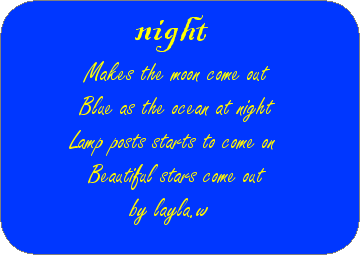 night
Makes the moon come out
Blue as the ocean at night
Lamp posts starts to come on
Beautiful stars come out
by layla.w